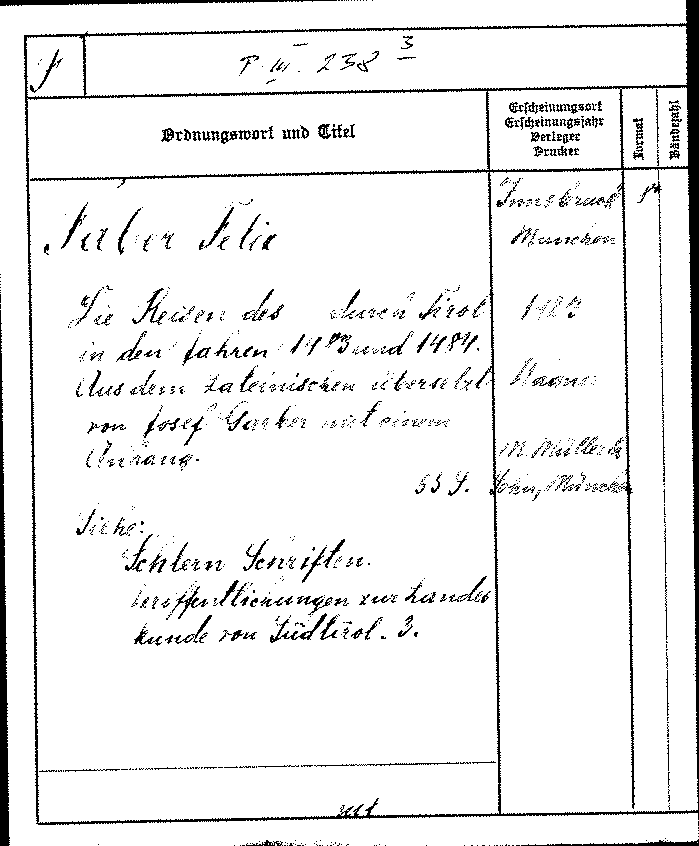 F
P. III. 238 3
Ordnungswort und Titel
Erscheinungsort
Erscheinungsjahr
Verleger
Drucker
Format
Bändezahl
Faber Felix
Innsbruck
8°
München
Die Reisen des durch Tirol
1923
in den Jahren 1483 und 1484.
Aus dem Lateinischen übersetzt
Wagner
von Josef Garber mit einem
Anhang.
M. Müller &
55 S.
Sohn, München
Siehe:
Schlern Schriften.
Veröffentlichungen zur Landes
kunde von Südtirol. 3.